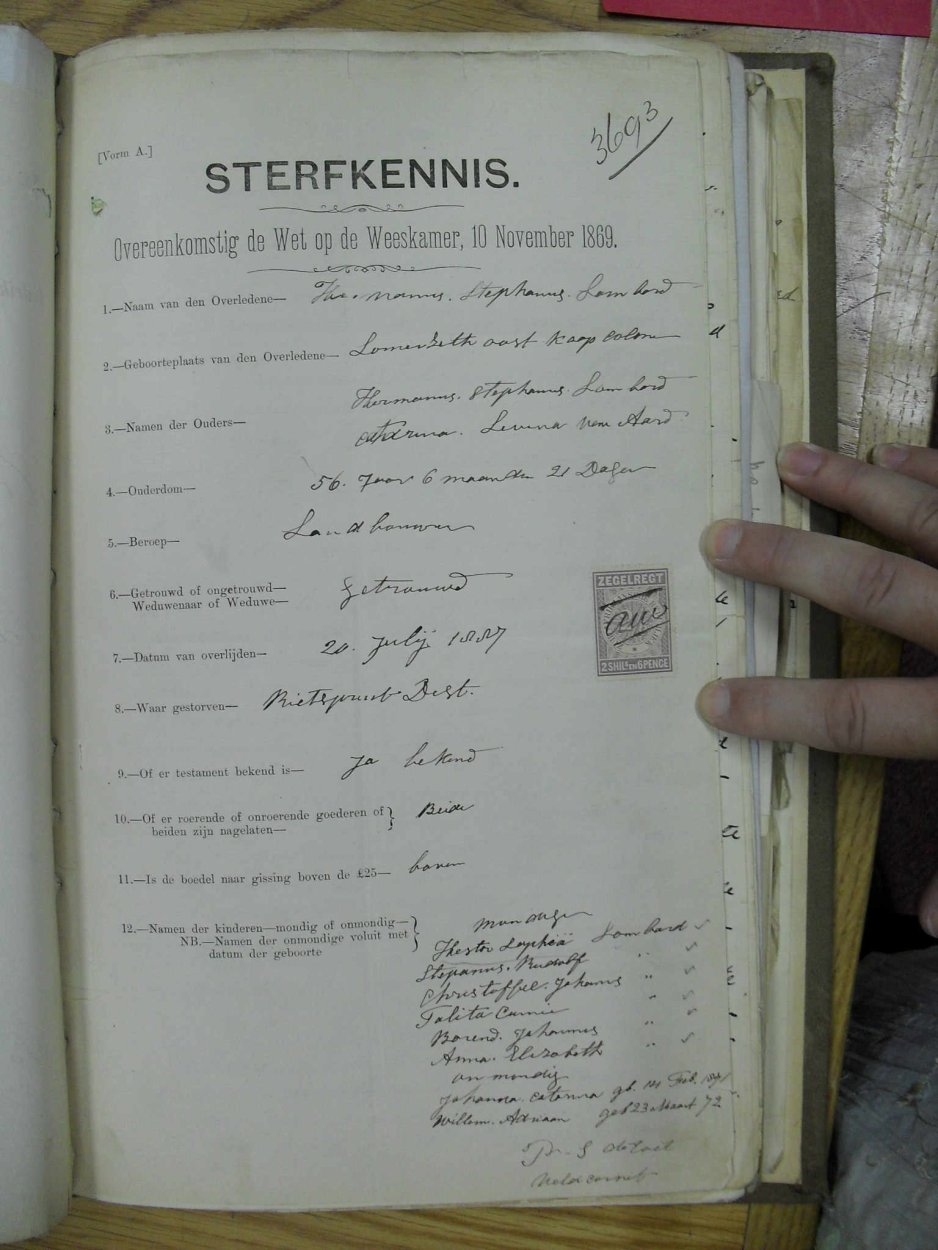 3693
[Vorm A.]
STERFKENNIS.
Overeenkomstig de Wet op de Weeskamer, 10 November 1869.
1.—Naam van den Overledene— Thermanus. Stephanus. Lombard
2.—Geboorteplaats van den Overledene— oost kaap colonie
Thermanus. Stephanus. Lombard
3.—Namen der Ouders— Levina van Aard
4.—Ouderdom— 56. Jaar 6 maanden 21 Dagen
5.—Beroep— Landbouwer
6.—Getrouwd of ongetrouwd— Getrouwd
Weduwenaar of Weduwe—
ZEGELREGT
2 SHILS EN 6 PENCE
7.—Datum van overlijden— 20. Julij 1887
8.—Waar gestorven— Rietspruit Dist.
9.—Of er testament bekend is— Ja bekend
10.—Of er roerende of onroerende goederen of beiden zijn nagelaten— Beide
11.—Is de boedel naar gissing boven de £25— boven
12.—Namen der kinderen—mondig of onmondig—
NB.—Namen der onmondige voluit met
datum der geboorte
Hester Sophia Lombard
Stepanus. Rudolf "
Christoffel. Johanns "
Talita "
Barend. Johannus "
Anna. Elizabeth "
onmondig
Johanna. Catarina gb. 14 Feb.
Willem. Adriaan geb 23 Maart 72
Veldcornet